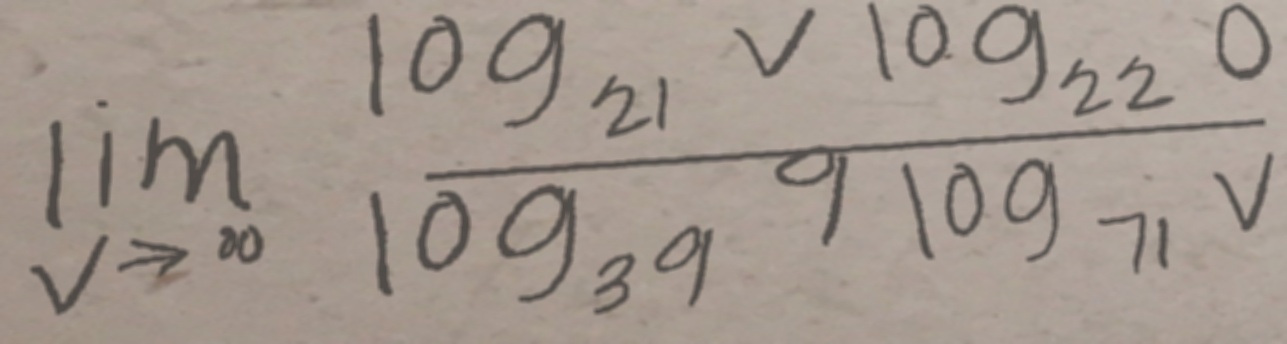 lim_{v→∞} \frac{log_{21} v log_{22} 0}{log_{39} 9 log_{71} v}